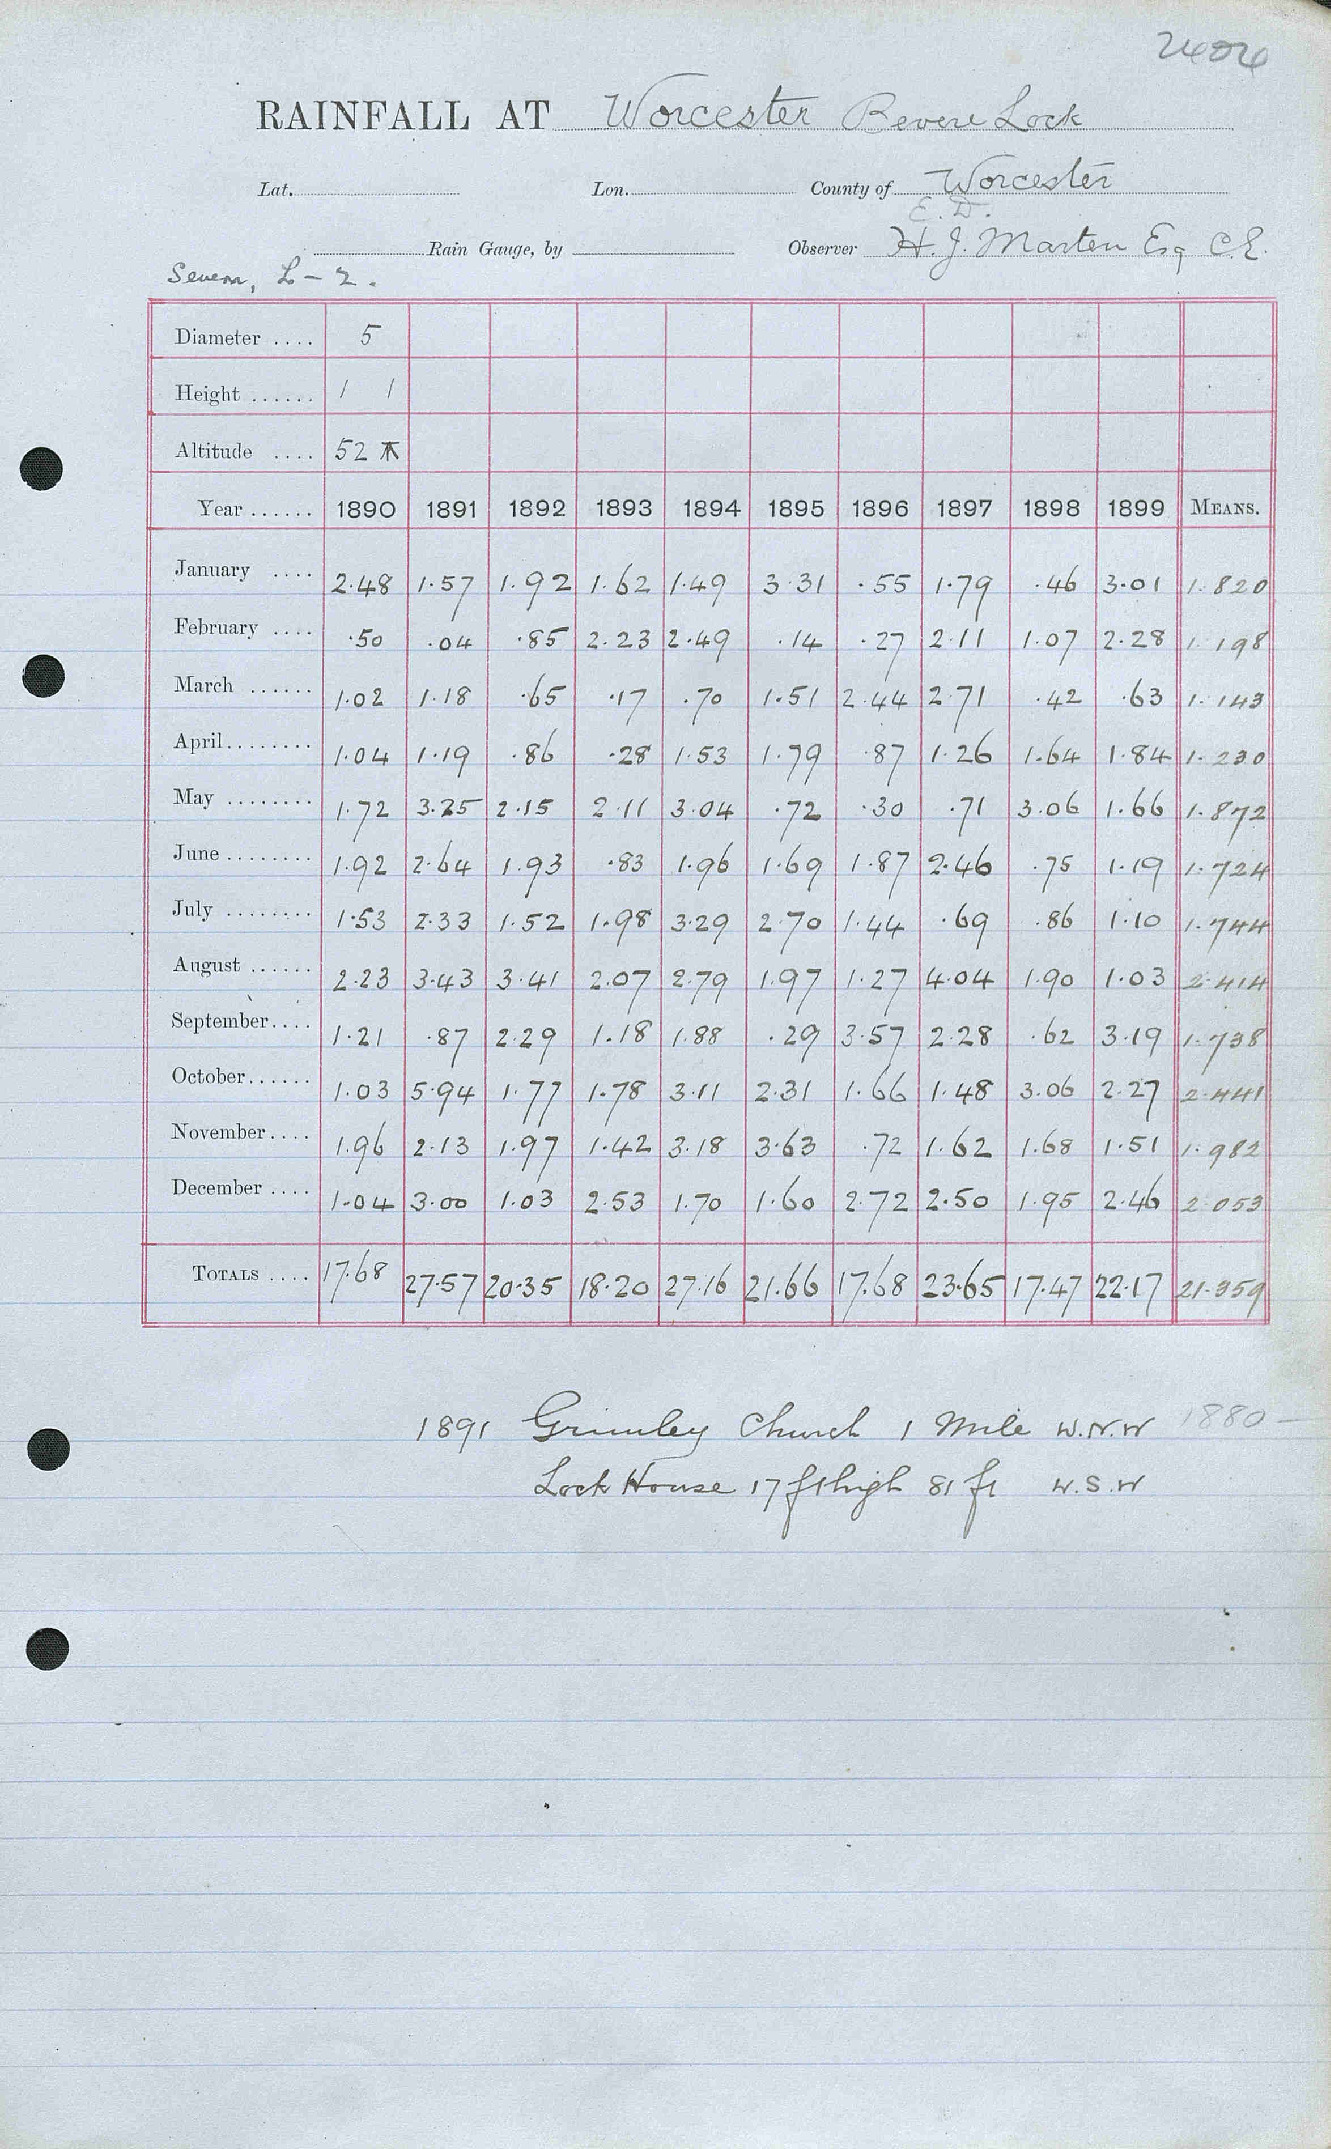 2404
RAINFALL AT Worcester Bevere Lock
Lat. Lon. County of Worcester
Rain Gauge, by Observer E. D. H. J. Marten Esq C.E.
Severn, L - 2.
Diameter .... 5
Height ...... 1 1
Altitude .... 52
Year ...... 1890 1891 1892 1893 1894 1895 1896 1897 1898 1899 MEANS.
January .... 2.48 1.57 1.92 1.62 1.49 3.31 .55 1.79 .46 3.01 1.820
February .... .50 .04 .85 2.23 2.49 .14 .27 2.11 1.07 2.28 1.198
March ...... 1.02 1.18 .65 .17 .70 1.51 2.44 2.71 .42 .63 1.143
April........ 1.04 1.19 .86 .28 1.53 1.79 .87 1.26 1.64 1.84 1.230
May ........ 1.72 3.25 2.15 2.11 3.04 .72 .30 .71 3.06 1.66 1.872
June ........ 1.92 2.64 1.93 .83 1.96 1.69 1.87 2.46 .75 1.19 1.724
July ........ 1.53 2.33 1.52 1.98 3.29 2.70 1.44 .69 .86 1.10 1.744
August ...... 2.23 3.43 3.41 2.07 2.79 1.97 1.27 4.04 1.90 1.03 2.414
September.... 1.21 .87 2.29 1.18 1.88 .29 3.57 2.28 .62 3.19 1.738
October...... 1.03 5.94 1.77 1.78 3.11 2.31 1.66 1.48 3.06 2.27 2.441
November.... 1.96 2.13 1.97 1.42 3.18 3.63 .72 1.62 1.68 1.51 1.982
December .... 1.04 3.00 1.03 2.53 1.70 1.60 2.72 2.50 1.95 2.46 2.053
TOTALS .... 17.68 27.57 20.35 18.20 27.16 21.66 17.68 23.65 17.47 22.17 21.359
1891 Grimley Church 1 Mile W.N.W 1880 —
Lock House 17 ft high 81 ft W.S.W